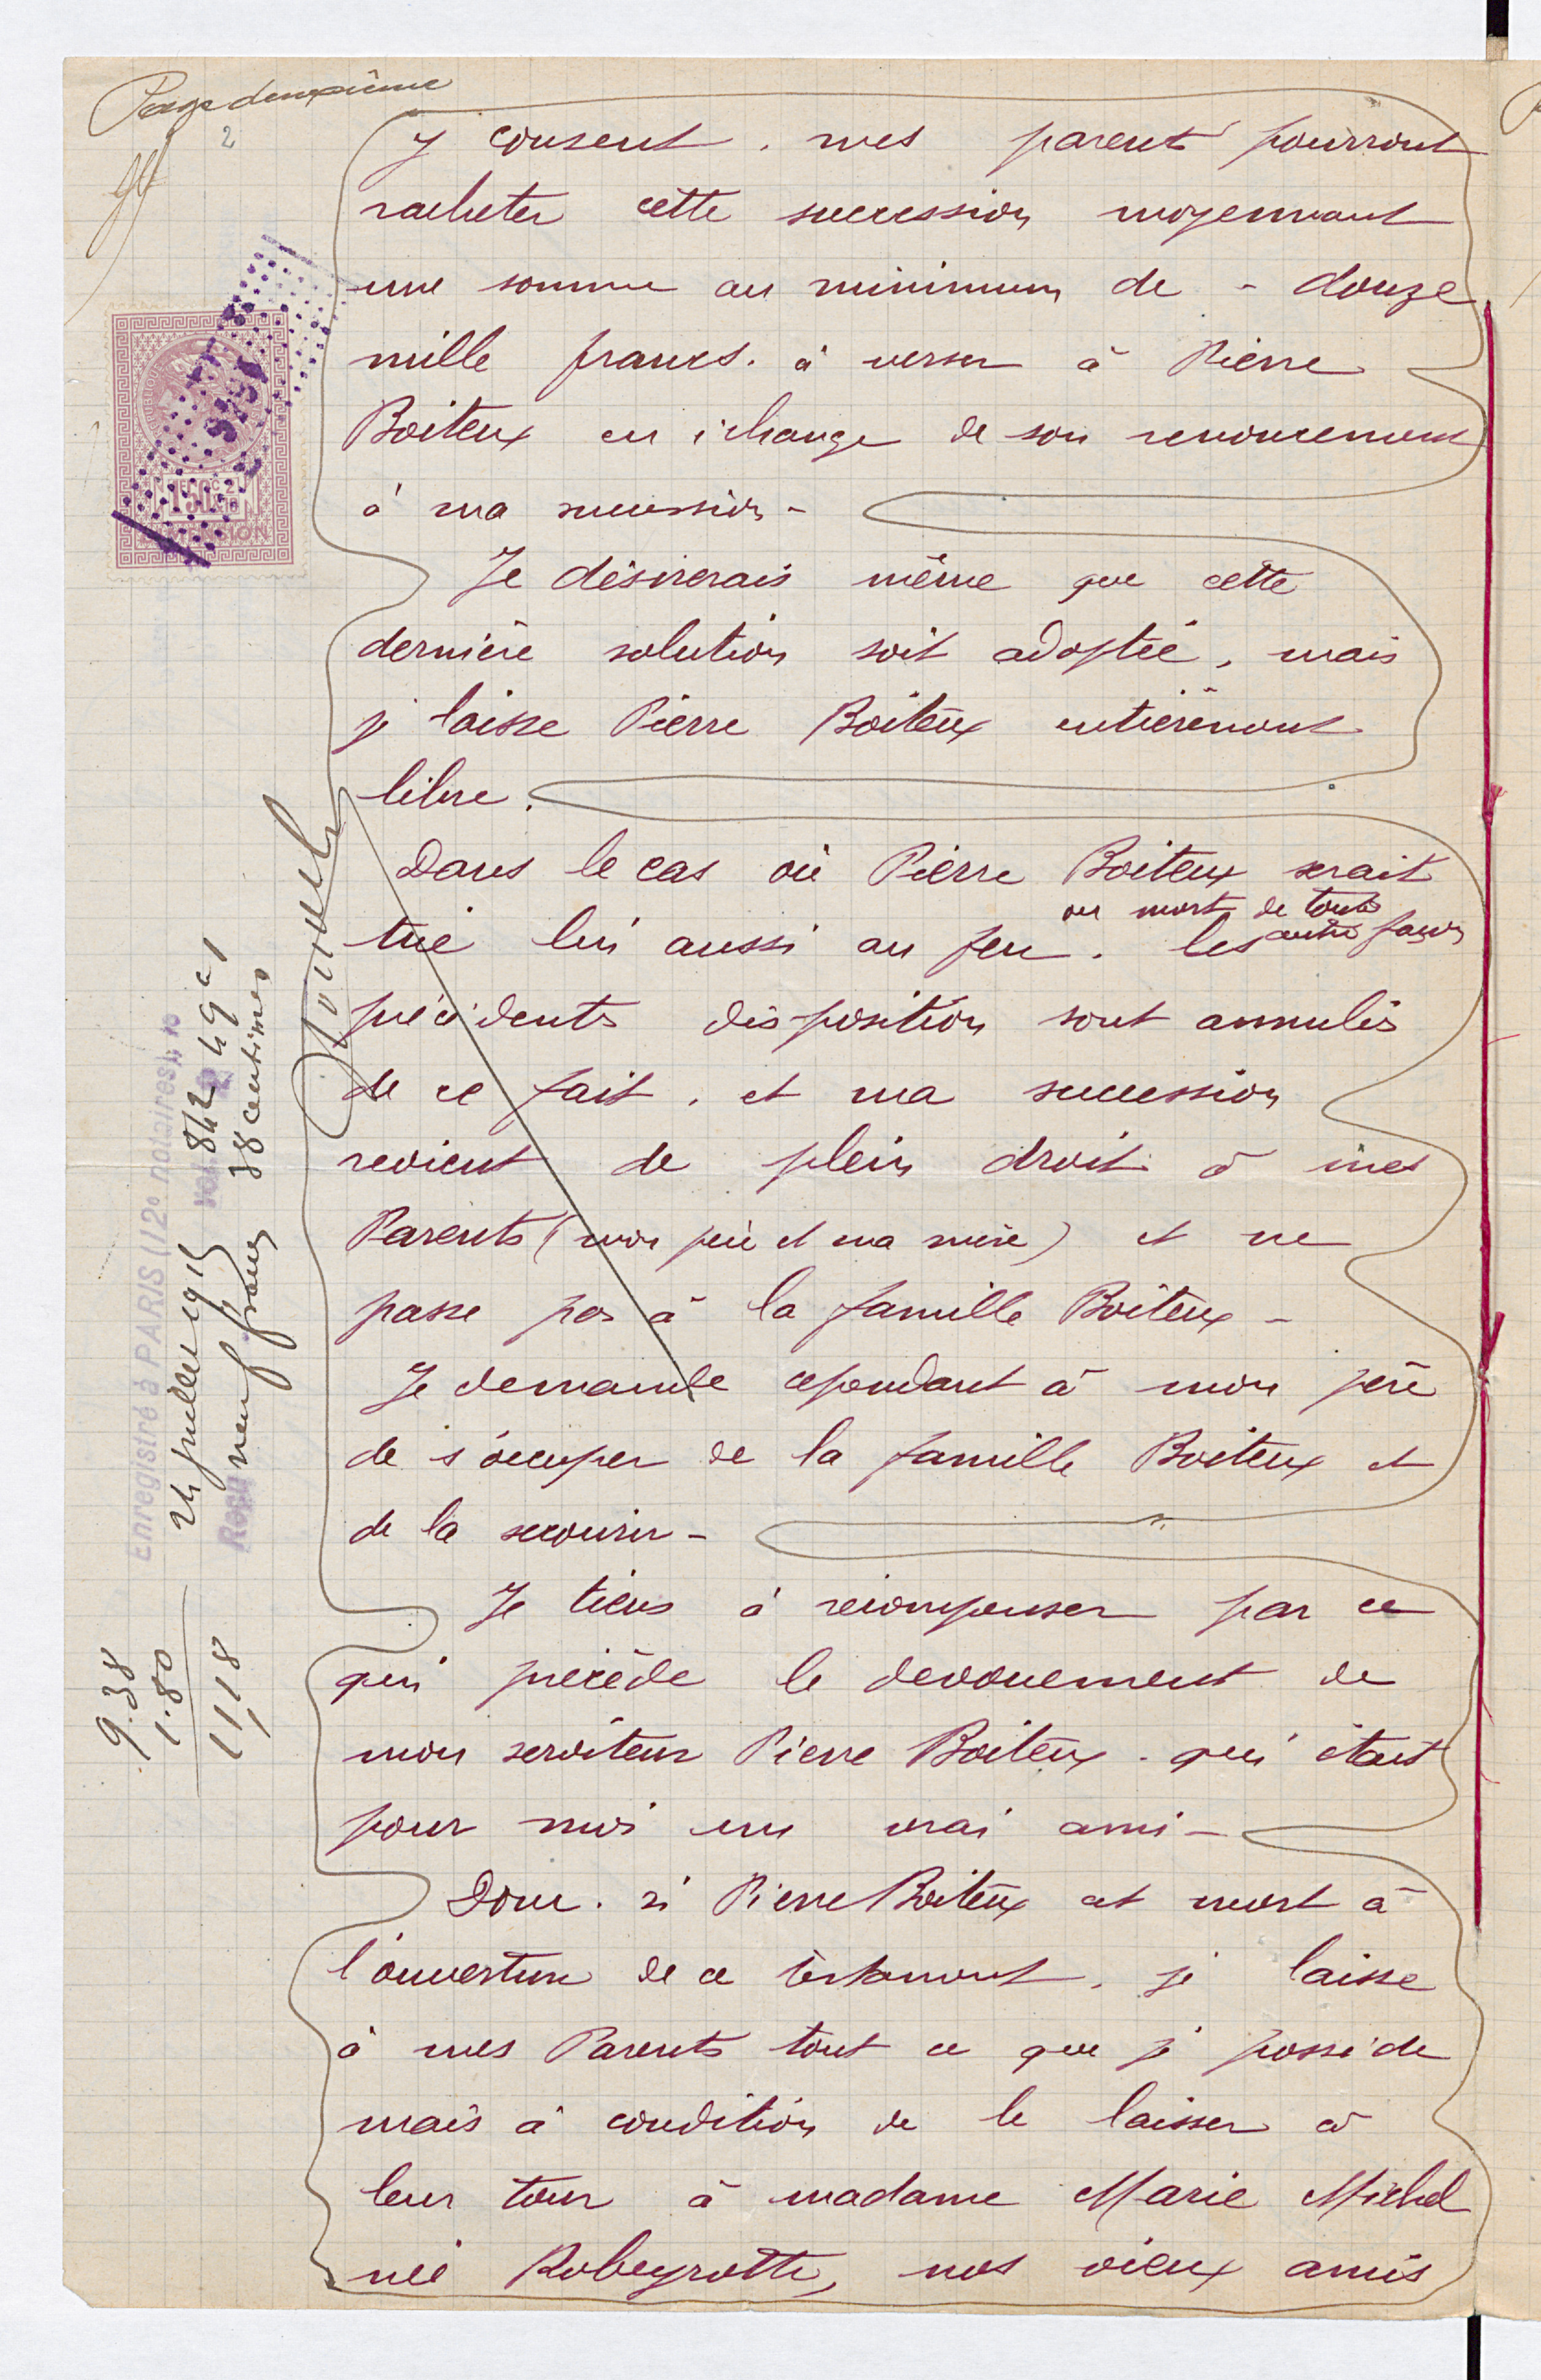 Page deuxième
2
y consent. mes parent pourront
racheter cette succession moyennant
une somme au minimum de - douze
mille francs. à verser à Pierre
Boiteux en échange de son renoncement
à ma succession -
Je désirerais même que cette
dernière solution soit adoptée, mais
je laisse Pierre Boiteux entièrement
libre.
Dans le cas où Pierre Boiteux serait
ou mort de toute
autre façon
tué lui aussi au feu. les
précédents disposition sont annulés
de ce fait. et ma succession
revient de plein droit à mes
Parents (mon père et ma mère) et ne
passe pas à la famille Boiteux -
Je demande cependant à mon père
de s'occuper de la famille Boiteux et
de la secourir -
Je tiens à récompenser par ce
qui précède le dévouement de
mon serviteur Pierre Boiteux. qui était
pour moi un vrai ami -
Donc. si Pierre Boiteux est mort à
l'ouverture de ce testament. je laisse
à mes Parents tout ce que je possède
mais à condition de le laisser à
leur tour à madame Marie Michel
née Robeyrotte, nos vieux amis
Enregistré à PARIS (12e notaires)
24 juillet 1915 Vol. 842 49 c 1
Reçu neuf francs 38 centimes
9.38
1.80
11,18